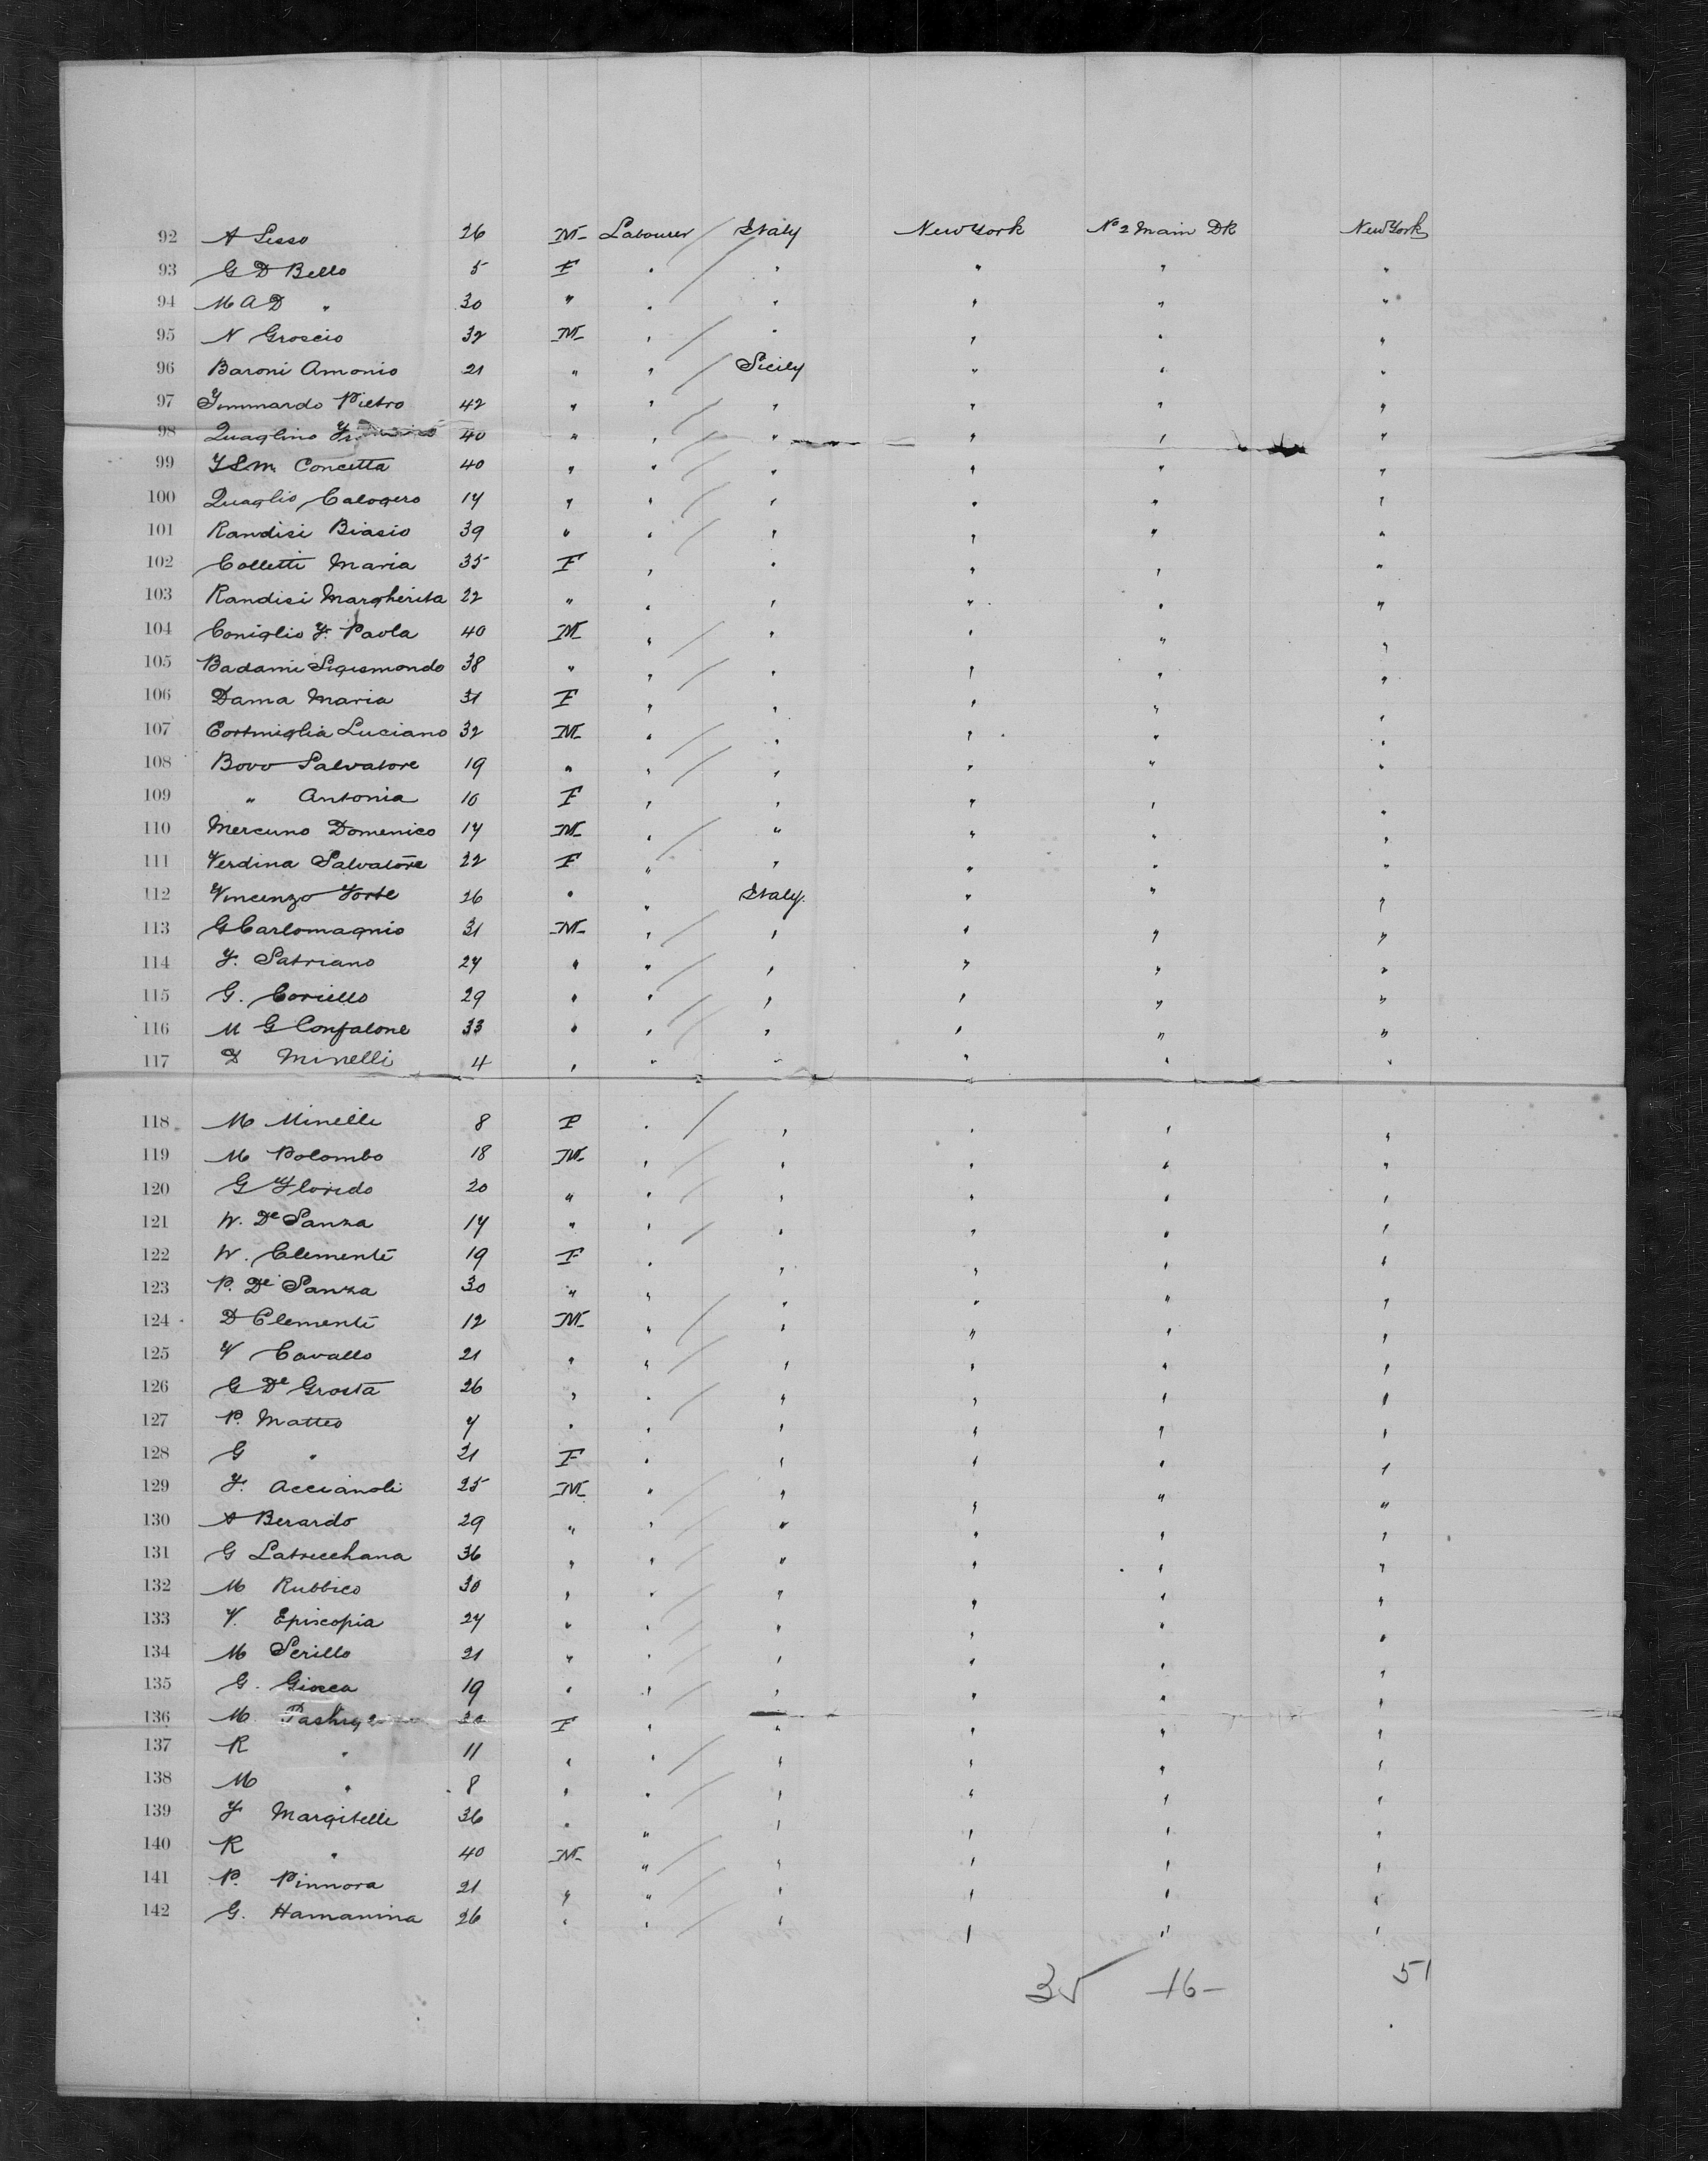 92 A Lesso 26 M Labourer / Italy New York No 2 Main DK New York
93 G D Bello 5 F " / " " " "
94 M A D " 30 " " " " " "
95 N Groscio 32 M " / " " " "
96 Baroni Amonio 21 " " / Sicily " " "
97 Jimmardo Pietro 42 " " / " " " "
98 Quaglino 40 " " / " " " "
99 Concetta 40 " " / " " " "
100 Quaglio Calogero 14 " " / " " " "
101 Randisi Biasio 39 " " / " " " "
102 Colletti Maria 35 F " " " " "
103 Randisi Margherita 22 " " " " " "
104 Coniglio F. Paola 40 M " / " " " "
105 Badami Sigismondo 38 " " / " " " "
106 Dama Maria 31 F " " " " "
107 Cortmiglia Luciano 32 M " / " " " "
108 Bovo Salvatore 19 " " / " " " "
109 " Antonia 10 F " " " " "
110 Mercuno Domenico 14 M " / " " " "
111 Verdina Salvatore 22 F " " " " "
112 Vincenzo Forte 26 " " Italy. " " "
113 G Carlomagnio 31 M " / " " " "
114 F. Satriano 24 " " / " " " "
115 G. Coriello 29 " " / " " " "
116 M G Confalone 33 " " / " " " "
117 D Minelli 4 " " " " " "
118 M Minelli 8 F " / " " " "
119 M Polombo 18 M " / " " " "
120 G Florido 20 " " / " " " "
121 W. De Sanza 14 " " / " " " "
122 W. Clementi 19 F " " " " "
123 P. De Sanza 30 " " " " " "
124 D Clementi 12 M " / " " " "
125 V Cavallo 21 " " / " " " "
126 G De Grosta 26 " " / " " " "
127 P. Matteo 4 " " " " " "
128 G " 21 F " " " " "
129 F. Accianoli 25 M " / " " " "
130 A Berardo 29 " " / " " " "
131 G Latrecchana 36 " " / " " " "
132 M Rubbico 30 " " / " " " "
133 V. Episcopia 24 " " / " " " "
134 M Serillo 21 " " / " " " "
135 G. Giocca 19 " " / " " " "
136 M 30 F " " " " "
137 R " 11 " " / " " " "
138 M " 8 " " / " " " "
139 F Margitelli 36 " " " " " "
140 R " 40 M " / " " " "
141 P. Pinnora 21 " " / " " " "
142 G. Hamanina 26 " " / " " " "
35 16 51